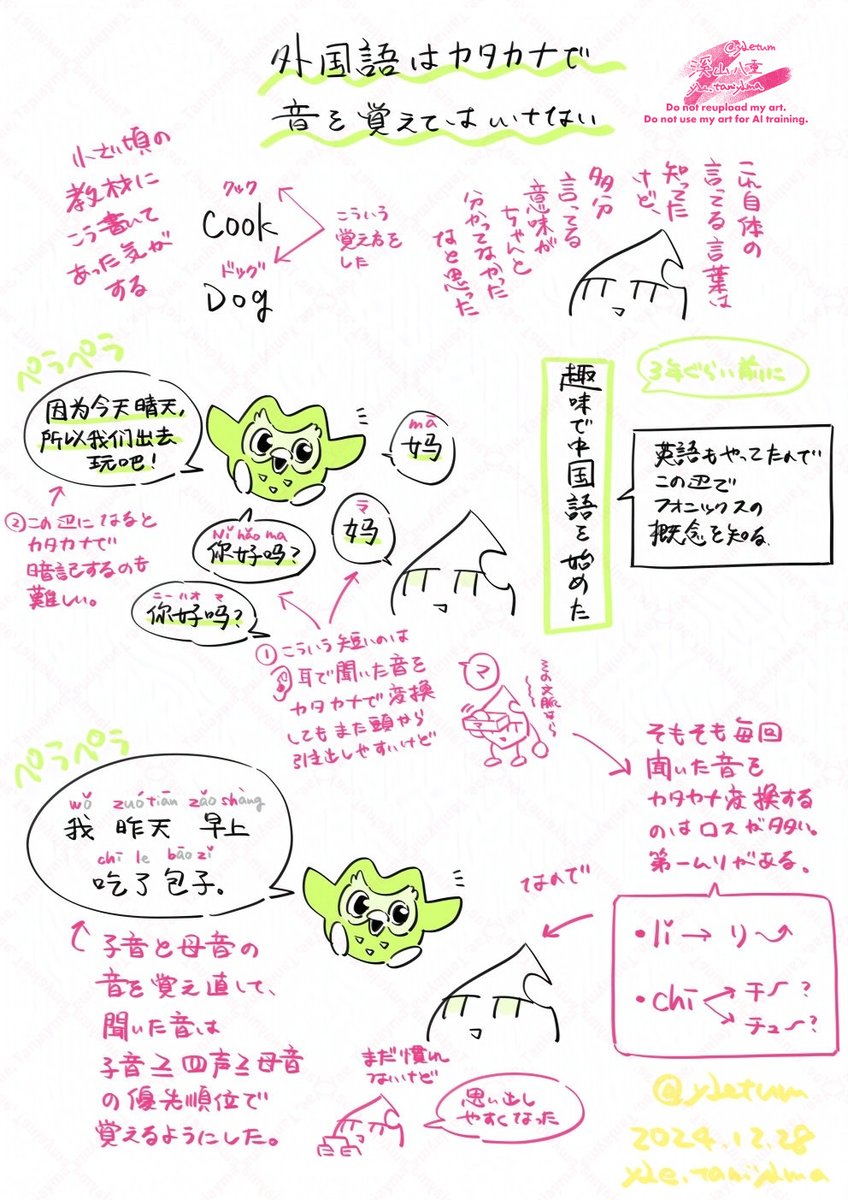 外国語はカタカナで
音を覚えてはいけない
@ydetum
溪山八重
yde.taniydma
Do not reupload my art.
Do not use my art for AI training.
これ自体の
言ってる言葉は
知ってた
けど、
多分
言ってる
意味が
ちゃんと
分かってなかった
なと思った
小さい頃の
教材に
こう書いて
あった気が
する
クック
Cook
ドッグ
Dog
こういう
覚え方を
した
3年ぐらい前に
趣味で中国語を始めた
英語もやってたので
この辺で
フォニックスの
概念を知る
ペラペラ
因为今天晴天,
所以我们出去
玩吧!
mā
妈
マ
妈
Nǐ hǎo ma
你好吗?
ニーハオ マ
你好吗?
②この辺になると
カタカナで
暗記するのも
難しい。
①こういう短いのは
耳で聞いた音を
カタカナで変換
してもまた頭から
引き出しやすいけど
マ
マ
そもそも毎回
聞いた音を
カタカナ変換する
のはロスが多い。
第一ムリがある。
•li→リー
•chī
チー?
チュー?
なので
ペラペラ
wǒ zuótiān zǎo shàng
我 昨天 早上
chī le bāo zǐ
吃了包子。
子音と母音の
音を覚え直して、
聞いた音は
子音≥四声≥母音
の優先順位で
覚えるようにした。
まだ慣れ
ないけど
思い出し
やすくなった
@ydetum
2024.12.28
yde.taniydma